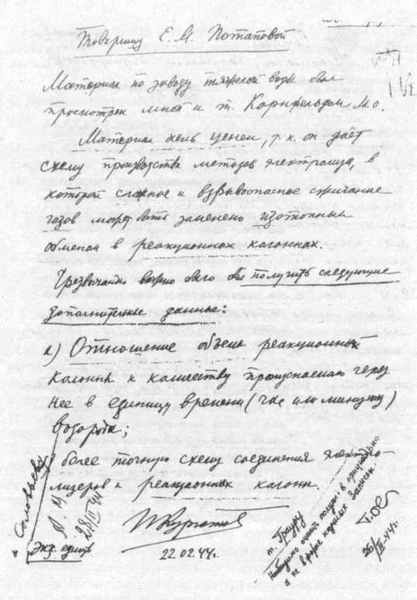 Товарищу Е.М. Потаповой
Материал по заводу тяжелой воды был
просмотрен мной и т. Корнфельдом М.О.
Материал очень ценен, т.к. он даёт
схему производства методов электролиза, в
которой сложное и взрывоопасное сжигание
газов может быть заменено изотопным
обменом в реакционных колоннах.
Чрезвычайно важно было бы получить следующие
дополнительные данные:
а) Отношение объема реакционной
колонны к количеству пропускаемого через
нее в единицу времени (час или минуту)
водорода;
более точную схему соединения электро-
лизеров и реакционных колонн.
И Курчатов
22.02.44.
Соловьева
Экз. един.
т. Грауру